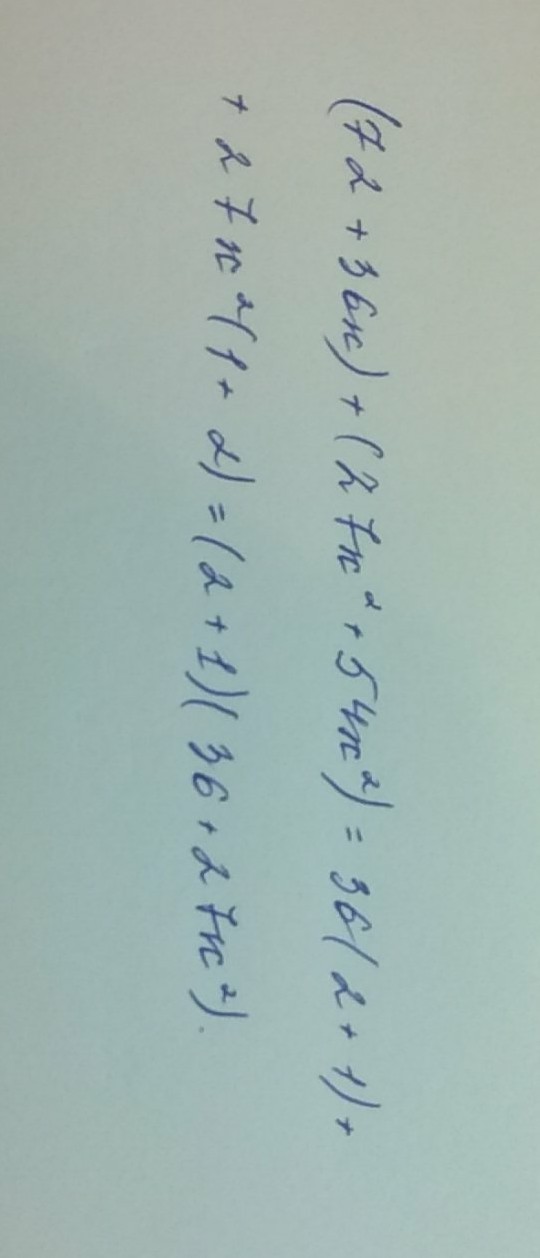 (72 + 36x) + (27x² + 54x²) = 36(2 + 1) +
+ 27x²(1 + 2) = (2 + 1)(36 + 27x²).